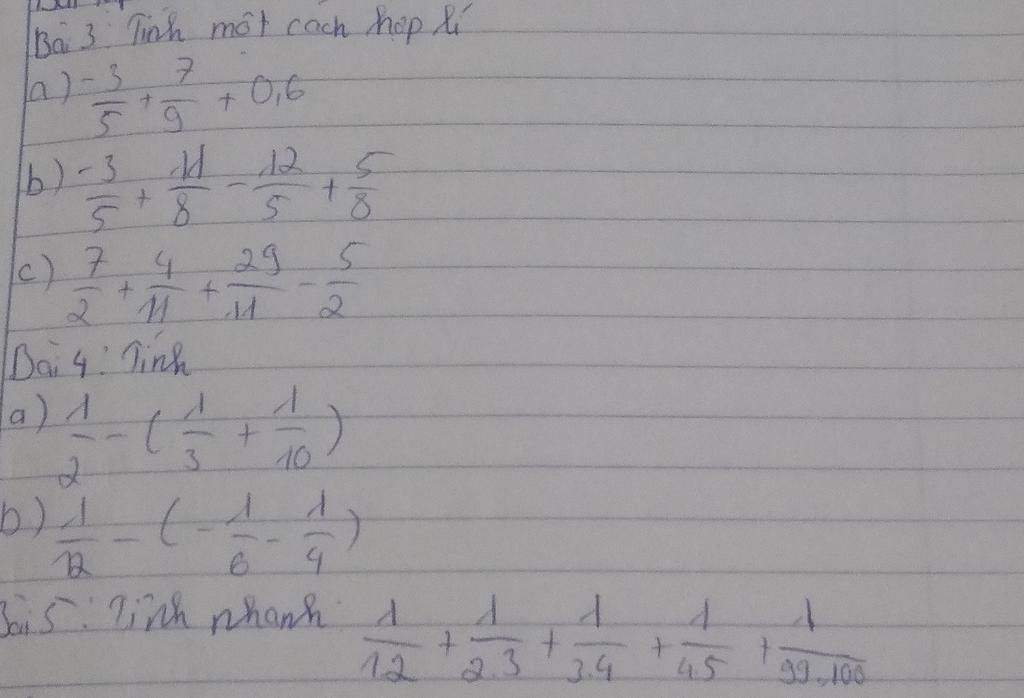 Bài 3: Tính một cách hợp lí
a) -3/5 + 7/9 + 0,6
b) -3/5 + 11/8 - 12/5 + 5/8
c) 7/2 + 4/11 + 29/11 - 5/2
Bài 4: Tính
a) 1/2 - (1/3 + 1/10)
b) 1/12 - (-1/6 - 1/4)
Bài 5: Tính nhanh: 1/1.2 + 1/2.3 + 1/3.4 + 1/4.5 + 1/99.100